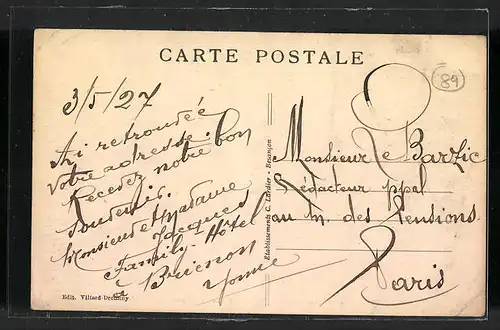 CARTE POSTALE
89
3/5/27
Ai retrouvée
votre adresse.
Recevez notre bon
souvenir.
Monsieur et Madame
Jacques
Family-Hôtel
à Brienon
Yonne
Monsieur Le Barzic
Rédacteur ppal
au M. des Pensions
Paris
Etablissements C. Lardier - Besançon
Edit. Villard-